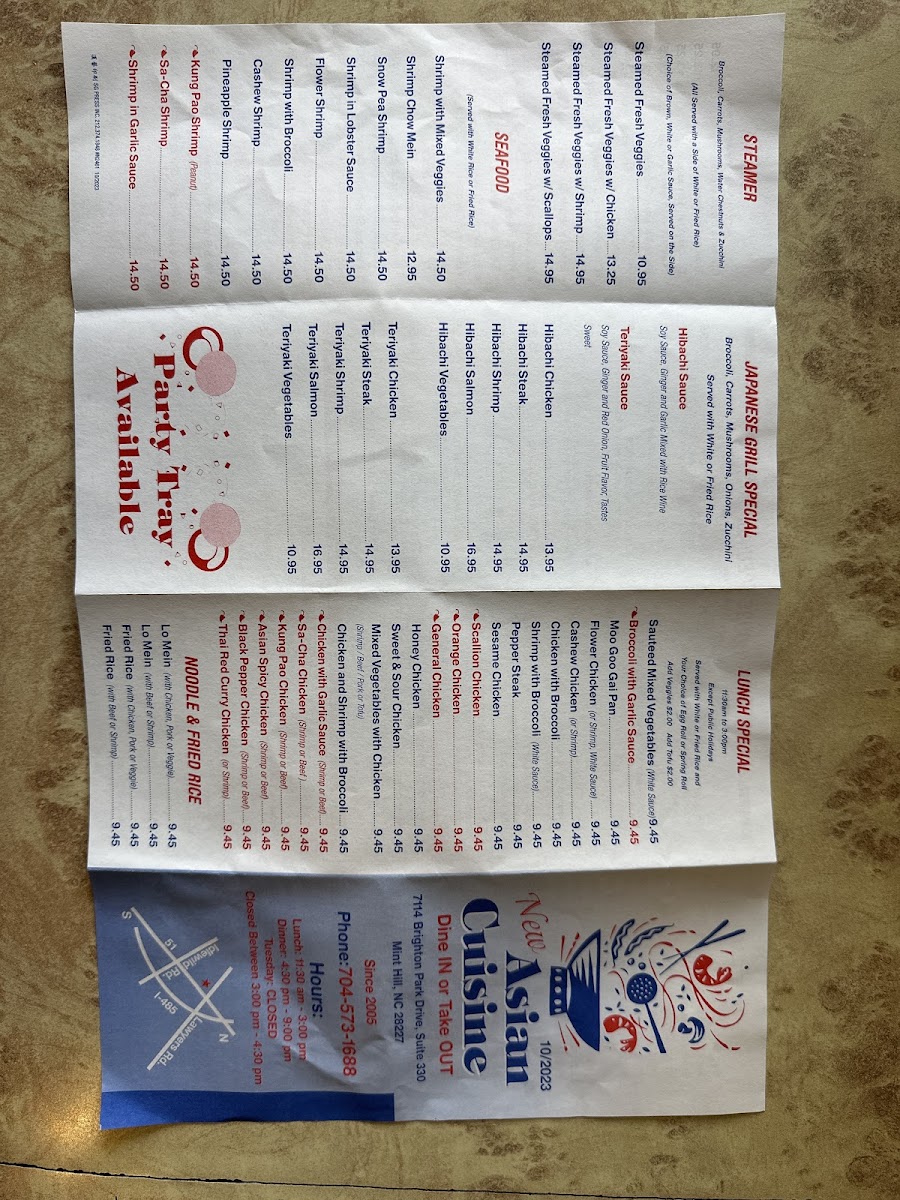 STEAMER
Broccoli, Carrots, Mushrooms, Water Chestnuts & Zucchini
(All Served with a Side of White or Fried Rice)
(Choice of Brown, White or Garlic Sauce, Served on the Side)
Steamed Fresh Veggies 10.95
Steamed Fresh Veggies w/ Chicken 13.25
Steamed Fresh Veggies w/ Shrimp 14.95
Steamed Fresh Veggies w/ Scallops 14.95
SEAFOOD
(Served with White Rice or Fried Rice)
Shrimp with Mixed Veggies 14.50
Shrimp Chow Mein 12.95
Snow Pea Shrimp 14.50
Shrimp in Lobster Sauce 14.50
Flower Shrimp 14.50
Shrimp with Broccoli 14.50
Cashew Shrimp 14.50
Pineapple Shrimp 14.50
Kung Pao Shrimp (Peanut) 14.50
Sa-Cha Shrimp 14.50
Shrimp in Garlic Sauce 14.50
JAPANESE GRILL SPECIAL
Broccoli, Carrots, Mushrooms, Onions, Zucchini
Served with White or Fried Rice
Hibachi Sauce
Soy Sauce, Ginger and Garlic Mixed with Rice Wine
Teriyaki Sauce
Soy Sauce, Ginger and Red Onion, Fruit Flavor, Tastes
Sweet
Hibachi Chicken 13.95
Hibachi Steak 14.95
Hibachi Shrimp 14.95
Hibachi Salmon 16.95
Hibachi Vegetables 10.95
Teriyaki Chicken 13.95
Teriyaki Steak 14.95
Teriyaki Shrimp 14.95
Teriyaki Salmon 16.95
Teriyaki Vegetables 10.95
Party Tray
Available
LUNCH SPECIAL
11:30am to 3:00pm
Except Public Holidays
Served with White or Fried Rice and
Your Choice of Egg Roll or Spring Roll
Add Veggies $2.00 Add Tofu $2.00
Sauteed Mixed Vegetables (White Sauce) 9.45
Broccoli with Garlic Sauce 9.45
Moo Goo Gai Pan 9.45
Flower Chicken (or Shrimp, White Sauce) 9.45
Cashew Chicken (or Shrimp) 9.45
Chicken with Broccoli 9.45
Shrimp with Broccoli (White Sauce) 9.45
Pepper Steak 9.45
Sesame Chicken 9.45
Scallion Chicken 9.45
Orange Chicken 9.45
General Chicken 9.45
Honey Chicken 9.45
Sweet & Sour Chicken 9.45
Mixed Vegetables with Chicken 9.45
(Shrimp / Beef / Pork or Tofu)
Chicken and Shrimp with Broccoli 9.45
Chicken with Garlic Sauce (Shrimp or Beef) 9.45
Sa-Cha Chicken (Shrimp or Beef) 9.45
Kung Pao Chicken (Shrimp or Beef) 9.45
Asian Spicy Chicken (Shrimp or Beef) 9.45
Black Pepper Chicken (Shrimp or Beef) 9.45
Thai Red Curry Chicken (or Shrimp) 9.45
NOODLE & FRIED RICE
Lo Mein (with Chicken, Pork or Veggie) 9.45
Lo Mein (with Beef or Shrimp) 9.45
Fried Rice (with Chicken, Pork or Veggie) 9.45
Fried Rice (with Beef or Shrimp) 9.45
10/2023
New Asian
Cuisine
Dine IN or Take OUT
7114 Brighton Park Drive, Suite 330
Mint Hill, NC 28227
Since 2005
Phone: 704-573-1688
Hours:
Lunch: 11:30 am - 3:00 pm
Dinner: 4:30 pm - 9:00 pm
Tuesday: CLOSED
Closed Between 3:00 pm - 4:30 pm
N
Lawyers Rd.
Idlewild Rd.
I-485
51
S